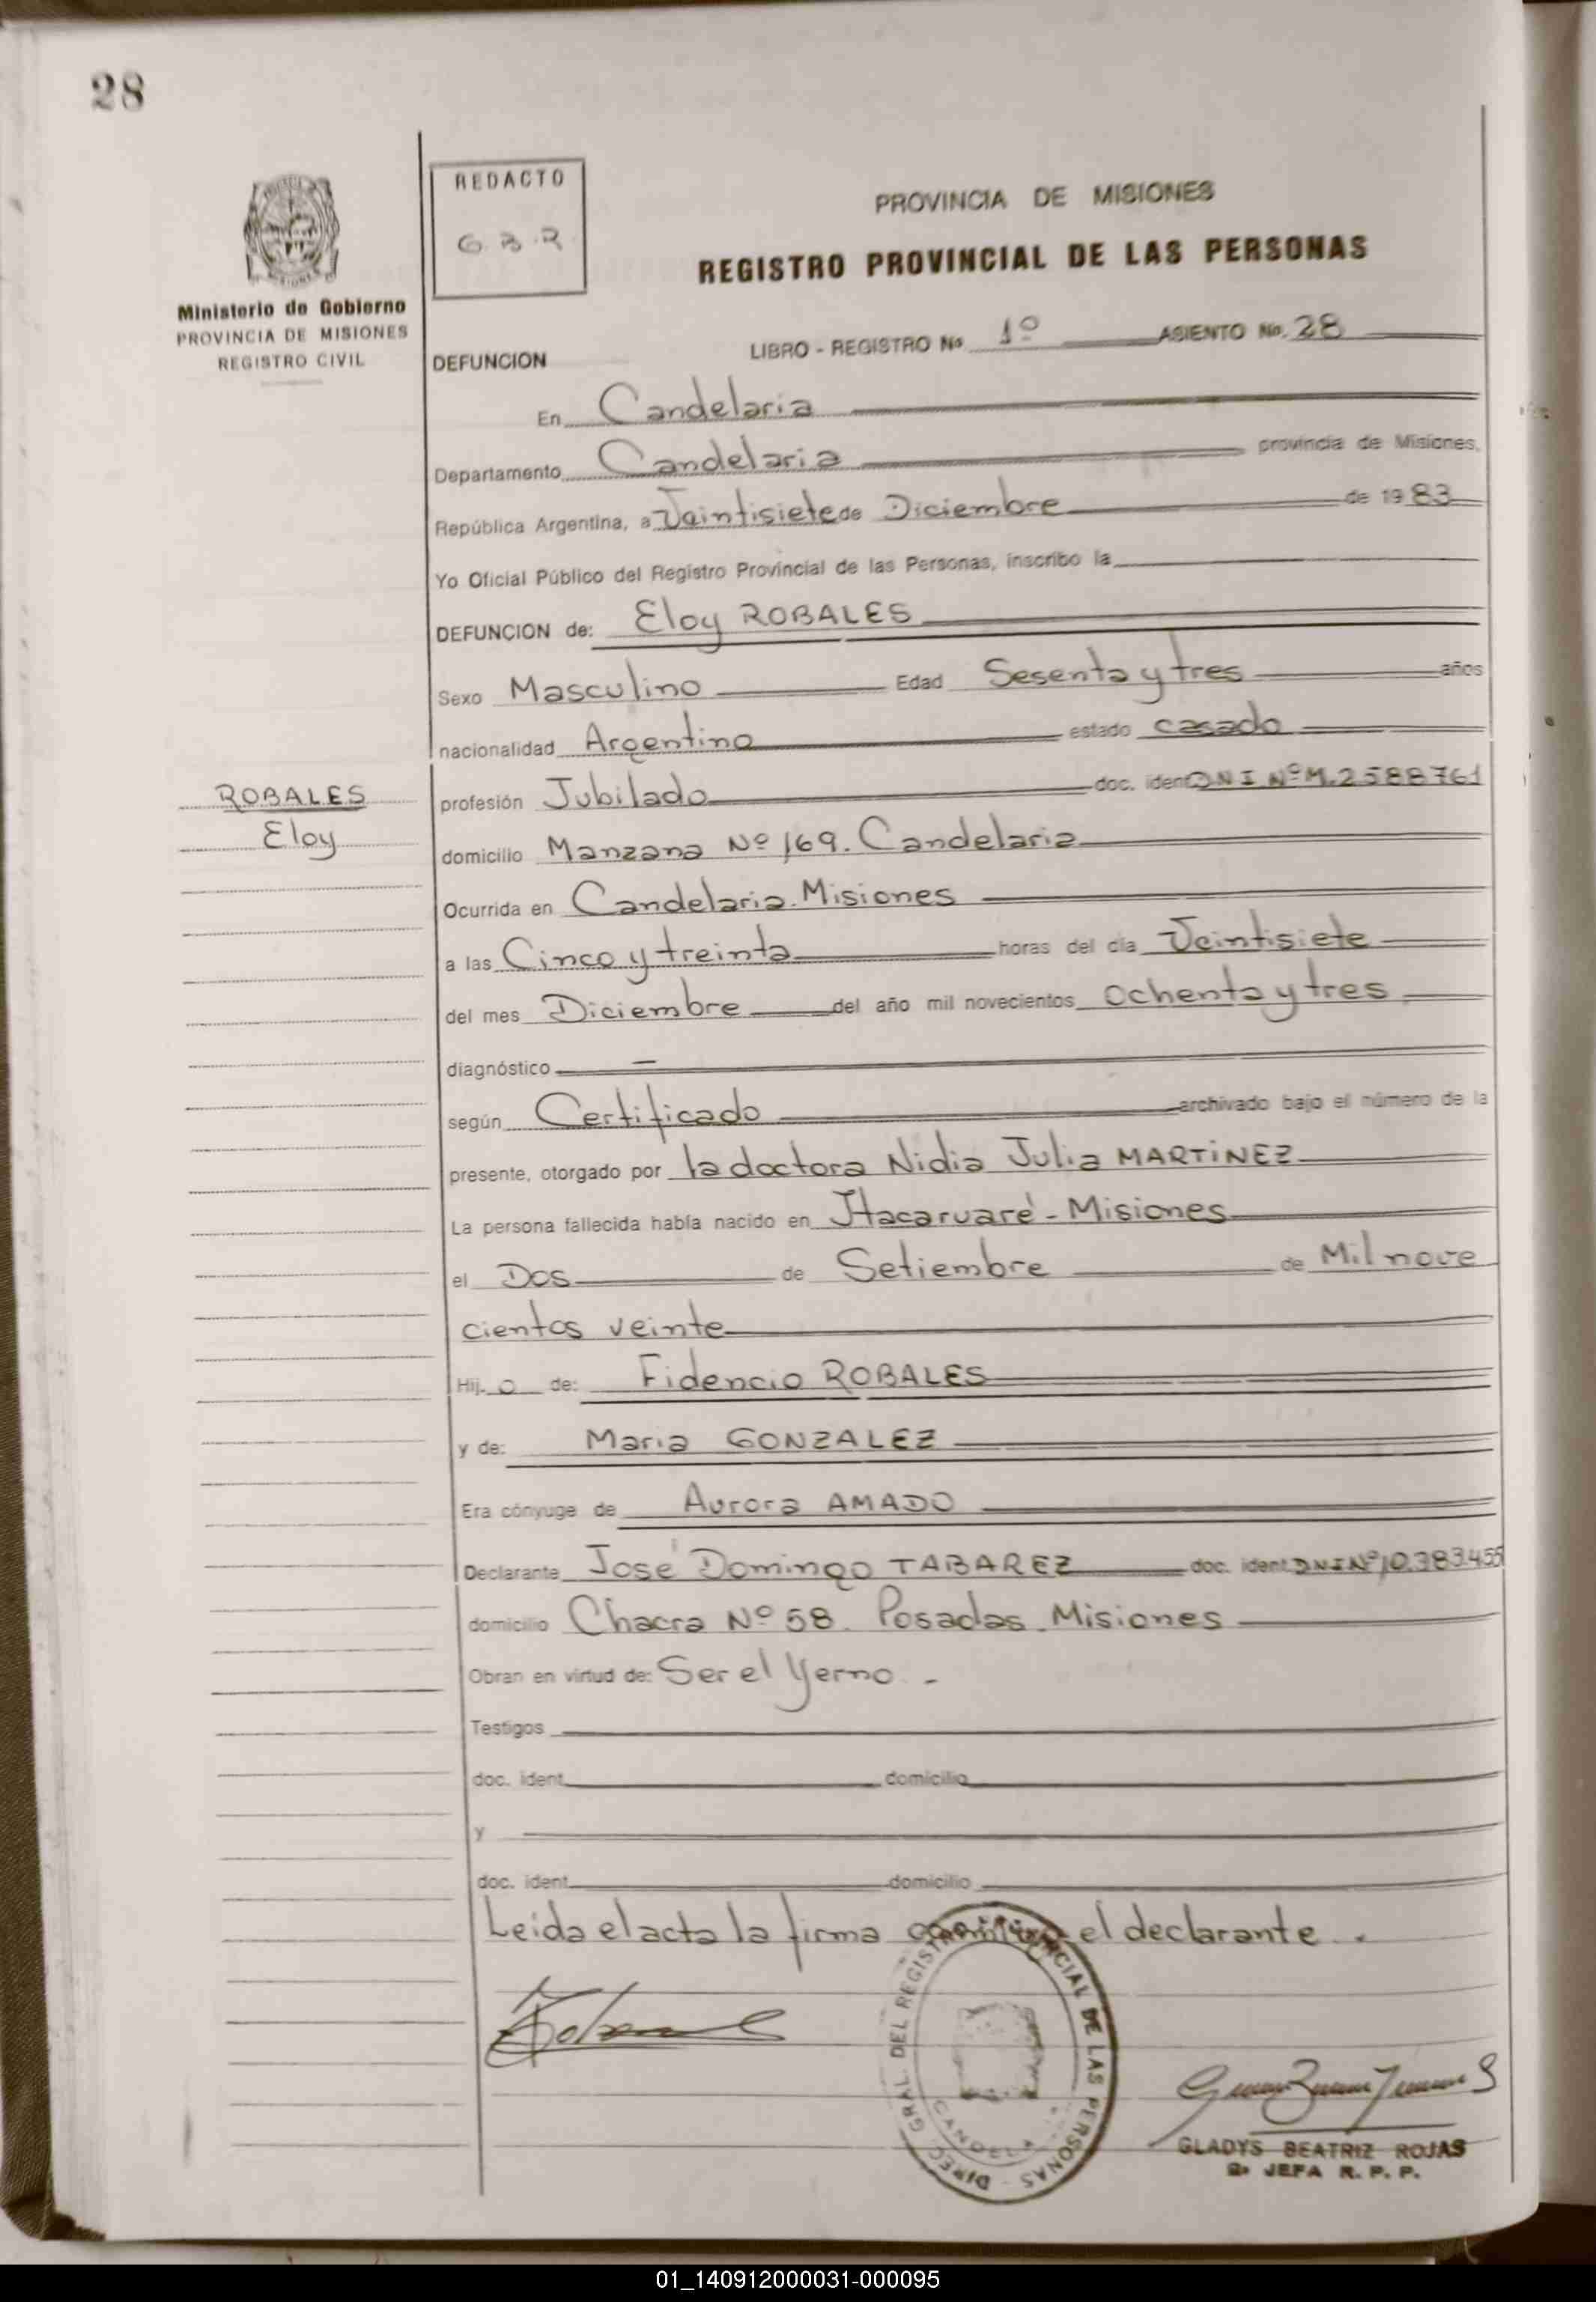 28
REDACTO
G. B. R.
PROVINCIA DE MISIONES
REGISTRO PROVINCIAL DE LAS PERSONAS
Ministerio de Gobierno
PROVINCIA DE MISIONES
REGISTRO CIVIL
LIBRO - REGISTRO No 1º ASIENTO No. 28
DEFUNCION
En Candelaria
Departamento Candelaria provincia de Misiones,
República Argentina, a Veintisiete de Diciembre de 1983
Yo Oficial Público del Registro Provincial de las Personas, inscribo la
DEFUNCION de: Eloy ROBALES
Sexo Masculino Edad Sesenta y tres años
nacionalidad Argentino estado casado
ROBALES
Eloy
profesión Jubilado doc. ident. DNI Nº M.2588761
domicilio Manzana Nº 169. Candelaria
Ocurrida en Candelaria. Misiones
a las Cinco y treinta horas del día Veintisiete
del mes Diciembre del año mil novecientos Ochenta y tres
diagnóstico —
según Certificado archivado bajo el número de la
presente, otorgado por la doctora Nidia Julia MARTINEZ
La persona fallecida había nacido en Itacaruaré - Misiones
el Dos de Setiembre de Mil nove
cientos veinte
Hij o de: Fidencio ROBALES
y de: Maria GONZALEZ
Era cónyuge de Aurora AMADO
Declarante José Domingo TABAREZ doc. ident. DNI Nº 10.383.455
domicilio Chacra Nº 58. Posadas. Misiones
Obran en virtud de: Ser el Yerno. -
Testigos
doc. ident. domicilio
y
doc. ident. domicilio
Leida el acta la firma conmigo el declarante.
DIREC. GRAL. DEL REGISTRO PROVINCIAL DE LAS PERSONAS -
GLADYS BEATRIZ ROJAS
JEFA R. P. P.
01_140912000031-000095